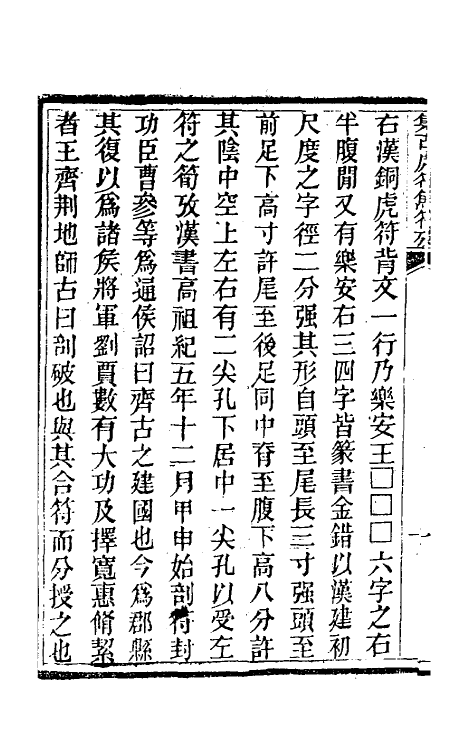 集古虎符魚符攷
右漢銅虎符背文一行乃樂安王□□□六字之右
半腹閒又有樂安右三四字皆篆書金錯以漢建初
尺度之字徑二分强其形自頭至尾長三寸强頭至
前足下高寸許尾至後足同中脊至腹下高八分許
其陰中空上左右有二尖孔下居中一尖孔以受左
符之筍攷漢書高祖紀五年十二月甲申始剖符封
功臣曹參等爲通侯詔曰齊古之建國也今爲郡縣
其復以爲諸侯將軍劉賈數有大功及擇寬惠脩絜
者王齊荆地師古曰剖破也與其合符而分授之也